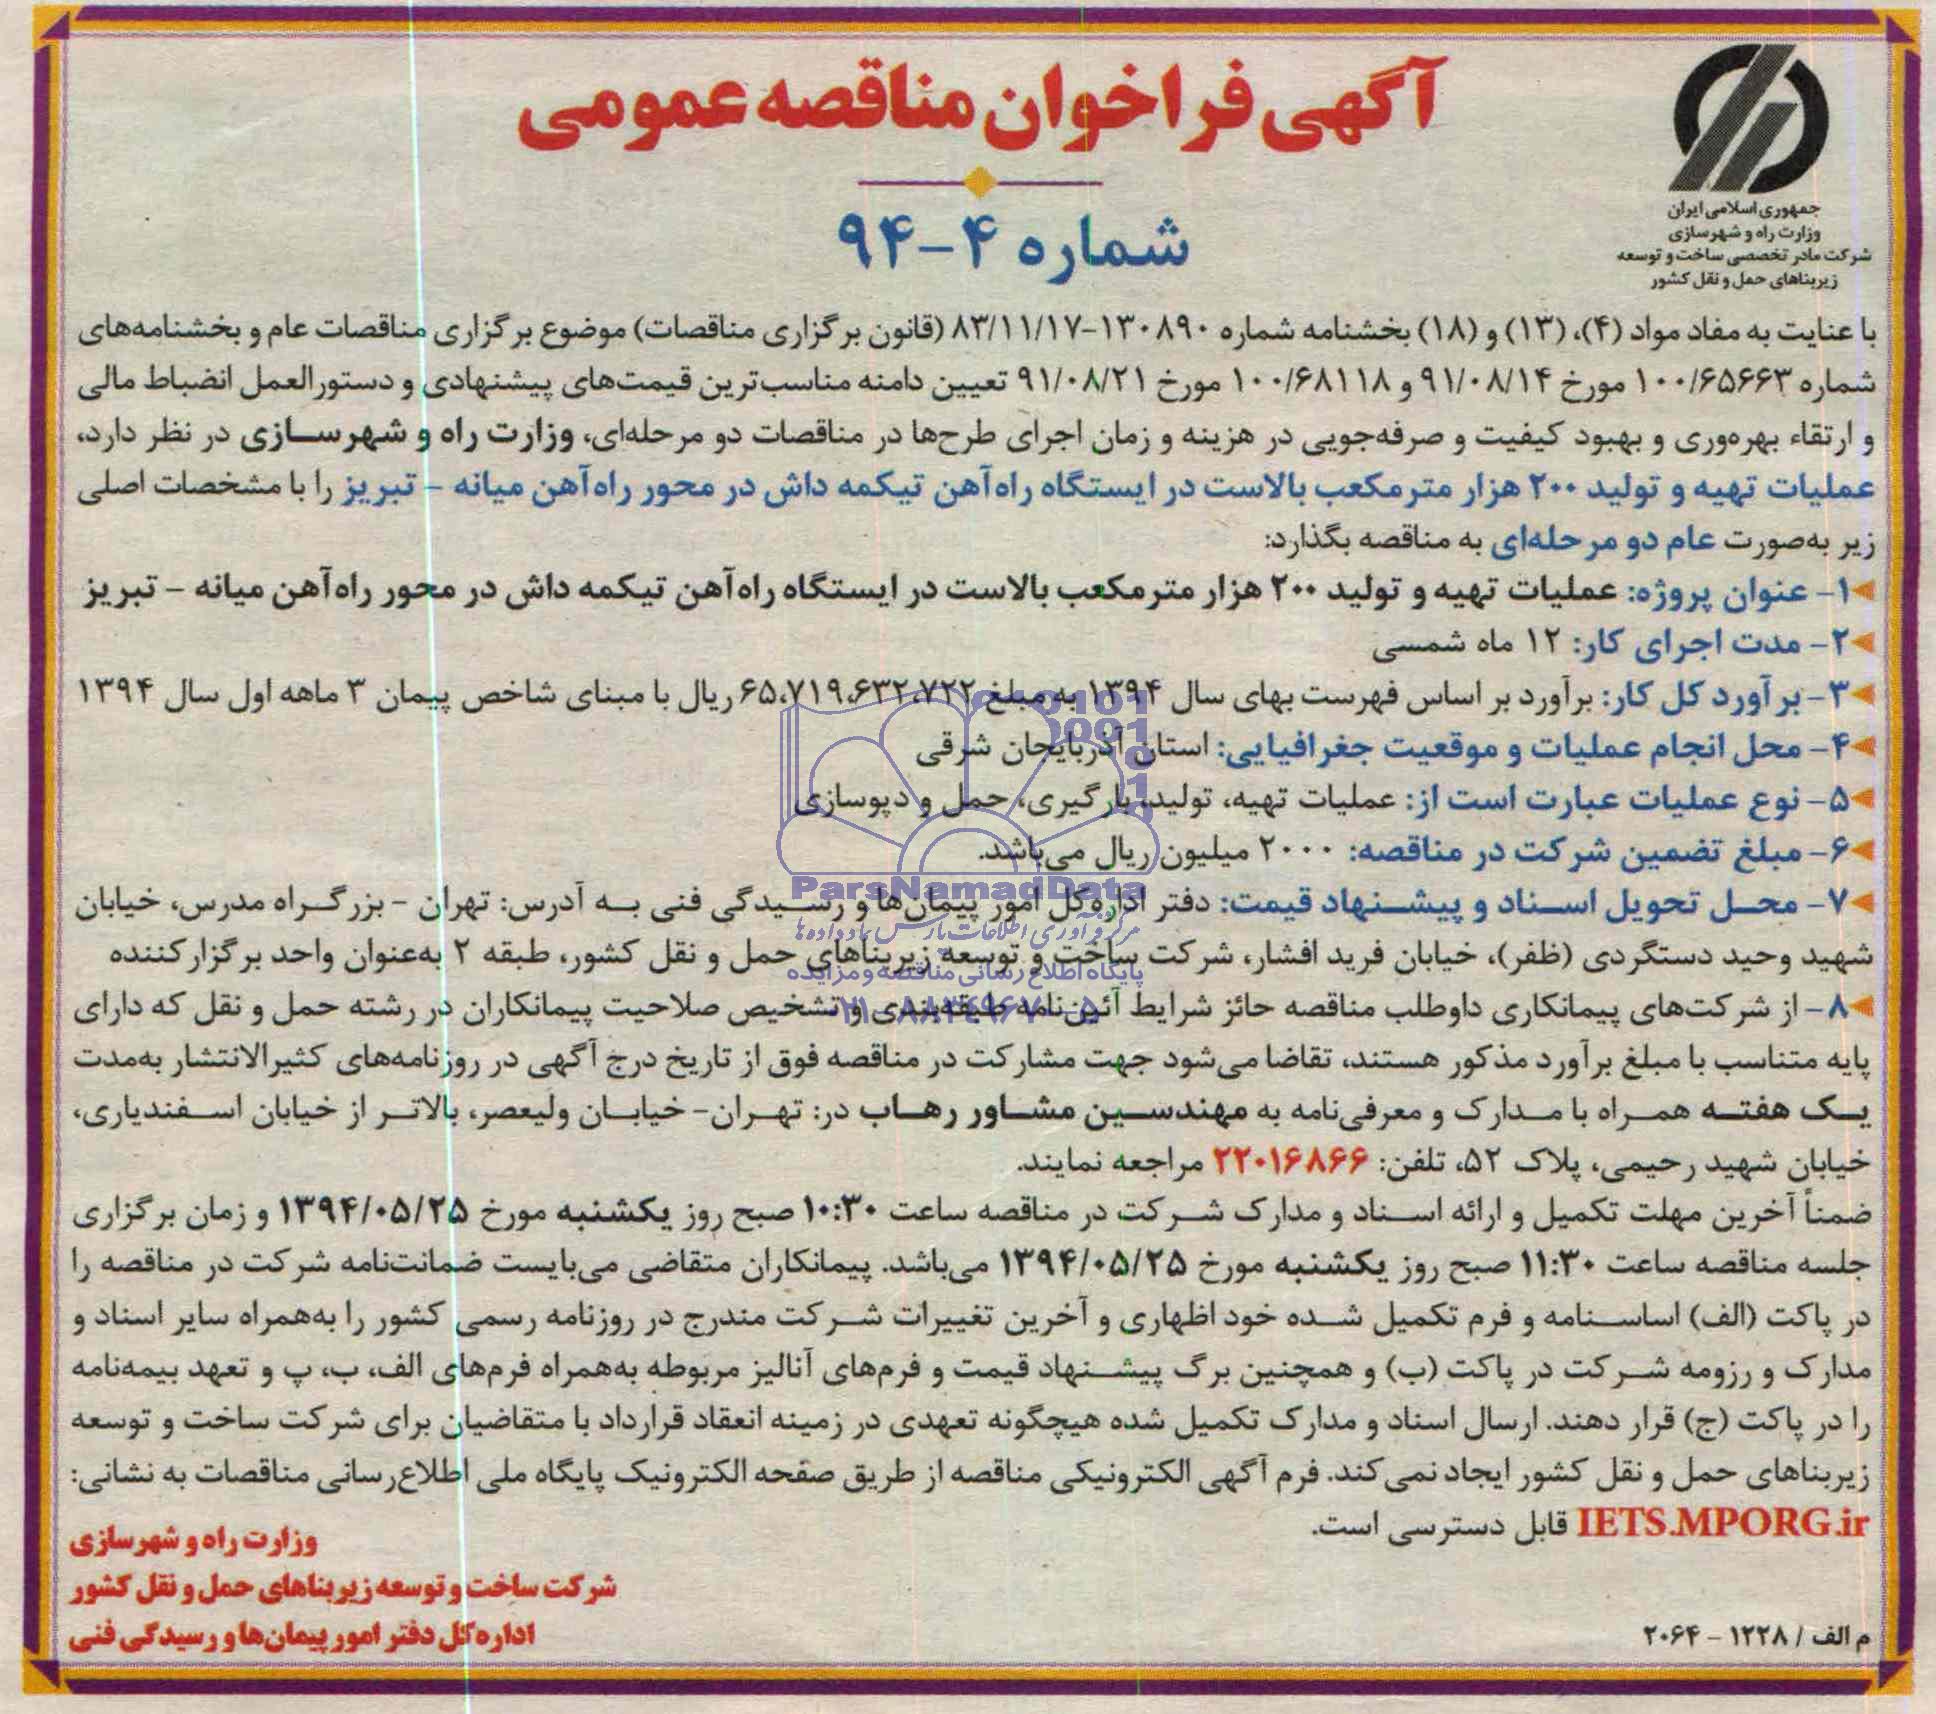 جمهوری اسلامی ایران
وزارت راه و شهرسازی
شرکت مادر تخصصی ساخت و توسعه
زیربناهای حمل و نقل کشور
آگهی فراخوان مناقصه عمومی
شماره ۴-۹۴
با عنایت به مفاد مواد (۴)، (۱۳) و (۱۸) بخشنامه شماره ۱۳۰۸۹۰-۸۳/۱۱/۱۷ (قانون برگزاری مناقصات) موضوع برگزاری مناقصات عام و بخشنامه‌های
شماره ۱۰۰/۶۵۶۶۳ مورخ ۹۱/۰۸/۱۴ و ۱۰۰/۶۸۱۱۸ مورخ ۹۱/۰۸/۲۱ تعیین دامنه مناسب‌ترین قیمت‌های پیشنهادی و دستورالعمل انضباط مالی
و ارتقاء بهره‌وری و بهبود کیفیت و صرفه‌جویی در هزینه و زمان اجرای طرح‌ها در مناقصات دو مرحله‌ای، وزارت راه و شهرسازی در نظر دارد،
عملیات تهیه و تولید ۲۰۰ هزار مترمکعب بالاست در ایستگاه راه‌آهن تیکمه داش در محور راه‌آهن میانه - تبریز را با مشخصات اصلی
زیر به‌صورت عام دو مرحله‌ای به مناقصه بگذارد:
۱- عنوان پروژه: عملیات تهیه و تولید ۲۰۰ هزار مترمکعب بالاست در ایستگاه راه‌آهن تیکمه داش در محور راه‌آهن میانه - تبریز
۲- مدت اجرای کار: ۱۲ ماه شمسی
۳- برآورد کل کار: برآورد بر اساس فهرست بهای سال ۱۳۹۴ به مبلغ ۶۵،۷۱۹،۶۳۲،۷۲۲ ریال با مبنای شاخص پیمان ۳ ماهه اول سال ۱۳۹۴
۴- محل انجام عملیات و موقعیت جغرافیایی: استان آذربایجان شرقی
۵- نوع عملیات عبارت است از: عملیات تهیه، تولید، بارگیری، حمل و دپوسازی
۶- مبلغ تضمین شرکت در مناقصه: ۲۰۰۰ میلیون ریال می‌باشد.
ParsNamadData
۷- محل تحویل اسناد و پیشنهاد قیمت: دفتر اداره‌کل امور پیمان‌ها و رسیدگی فنی به آدرس: تهران - بزرگراه مدرس، خیابان
مرکز فرآوری اطلاعات پارس نماد داده‌ها
شهید وحید دستگردی (ظفر)، خیابان فرید افشار، شرکت ساخت و توسعه زیربناهای حمل و نقل کشور، طبقه ۲ به‌عنوان واحد برگزارکننده
پایگاه اطلاع رسانی مناقصه و مزایده
۸- از شرکت‌های پیمانکاری داوطلب مناقصه حائز شرایط آئین‌نامه طبقه‌بندی و تشخیص صلاحیت پیمانکاران در رشته حمل و نقل که دارای
۰۲۱-۸۸۳۴۹۶۷۰-۵
پایه متناسب با مبلغ برآورد مذکور هستند، تقاضا می‌شود جهت مشارکت در مناقصه فوق از تاریخ درج آگهی در روزنامه‌های کثیرالانتشار به‌مدت
یک هفته همراه با مدارک و معرفی‌نامه به مهندسین مشاور رهاب در: تهران- خیابان ولیعصر، بالاتر از خیابان اسفندیاری،
خیابان شهید رحیمی، پلاک ۵۲، تلفن: ۲۲۰۱۶۸۶۶ مراجعه نمایند.
ضمناً آخرین مهلت تکمیل و ارائه اسناد و مدارک شرکت در مناقصه ساعت ۱۰:۳۰ صبح روز یکشنبه مورخ ۱۳۹۴/۰۵/۲۵ و زمان برگزاری
جلسه مناقصه ساعت ۱۱:۳۰ صبح روز یکشنبه مورخ ۱۳۹۴/۰۵/۲۵ می‌باشد. پیمانکاران متقاضی می‌بایست ضمانت‌نامه شرکت در مناقصه را
در پاکت (الف) اساسنامه و فرم تکمیل شده خود اظهاری و آخرین تغییرات شرکت مندرج در روزنامه رسمی کشور را به‌همراه سایر اسناد و
مدارک و رزومه شرکت در پاکت (ب) و همچنین برگ پیشنهاد قیمت و فرم‌های آنالیز مربوطه به‌همراه فرم‌های الف، ب، پ و تعهد بیمه‌نامه
را در پاکت (ج) قرار دهند. ارسال اسناد و مدارک تکمیل شده هیچگونه تعهدی در زمینه انعقاد قرارداد با متقاضیان برای شرکت ساخت و توسعه
زیربناهای حمل و نقل کشور ایجاد نمی‌کند. فرم آگهی الکترونیکی مناقصه از طریق صفحه الکترونیک پایگاه ملی اطلاع‌رسانی مناقصات به نشانی:
IETS.MPORG.ir قابل دسترسی است.
وزارت راه و شهرسازی
شرکت ساخت و توسعه زیربناهای حمل و نقل کشور
اداره کل دفتر امور پیمان‌ها و رسیدگی فنی
م الف / ۱۲۲۸ - ۲۰۶۴